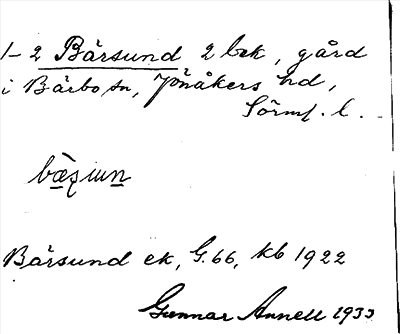 1-2 Bärsund 2 brk, gård
i Bärbo sn, Jönåkers hd,
Sörml. l.
Bärsund ek, G. 66, kb 1922
Gunnar Annell 1933